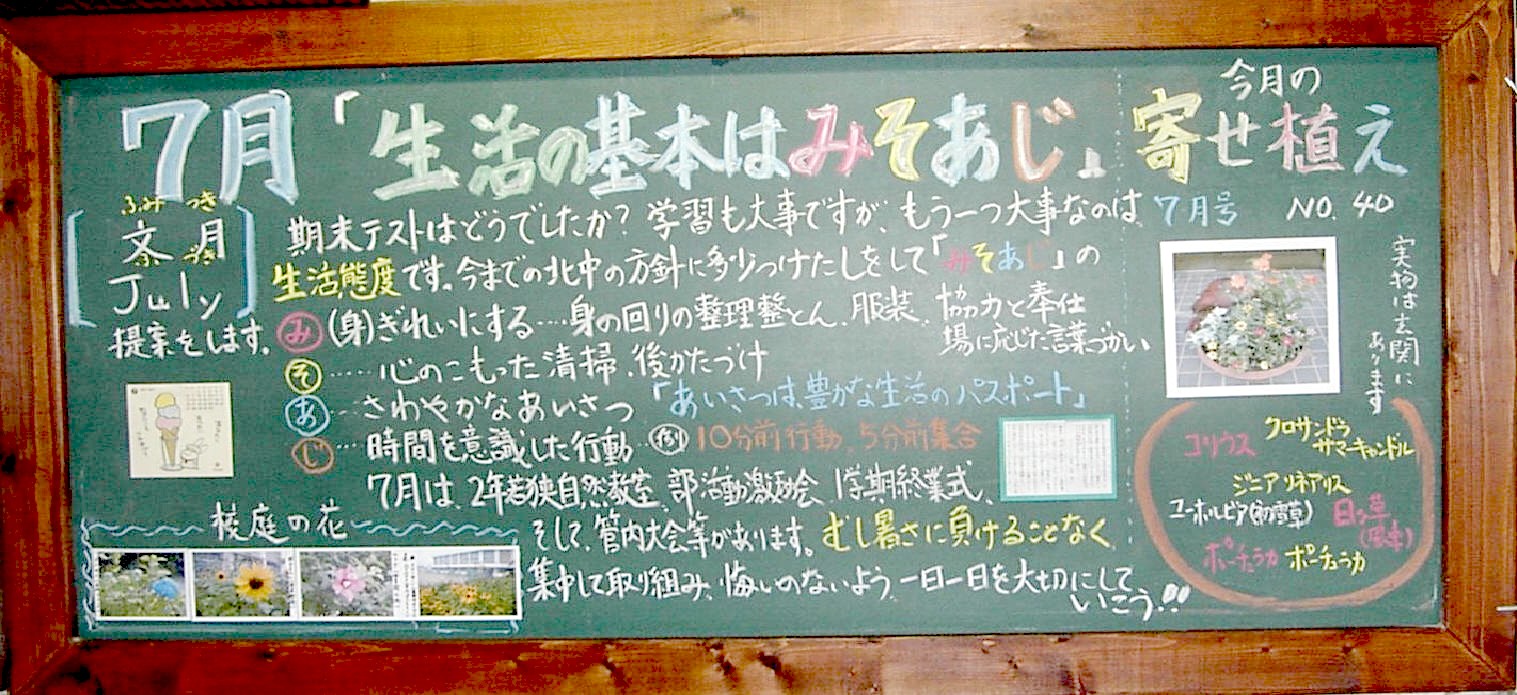 7月「生活の基本はみそあじ」
ふみ づき
文月
July
期末テストはどうでしたか？学習も大事ですが、もう一つ大事なのは
生活態度です。今までの北中の方針に多少つけたしをして「みそあじ」の
提案をします。
み (身)ぎれいにする……身の回りの整理整とん、服装、協力と奉仕
場に応じた言葉づかい
そ……心のこもった清掃、後かたづけ
あ…さわやかなあいさつ「あいさつは、豊かな生活のパスポート」
じ…時間を意識した行動…(例)10分前行動、5分前集合
7月は、2年若狭自然教室、部活動激励会、1学期終業式、
そして、管内大会等があります。むし暑さに負けることなく
集中して取り組み、悔いのないよう、一日一日を大切にして
いこう!!
校庭の花
今月の
寄せ植え
7月号 NO. 40
実物は玄関に
あります
コリウス
クロサンドラ
サマーキャンドル
ジニアリネアリス
ユーホルビア(初雪草)
日々草
ポーチュラカ ポーチュラカ